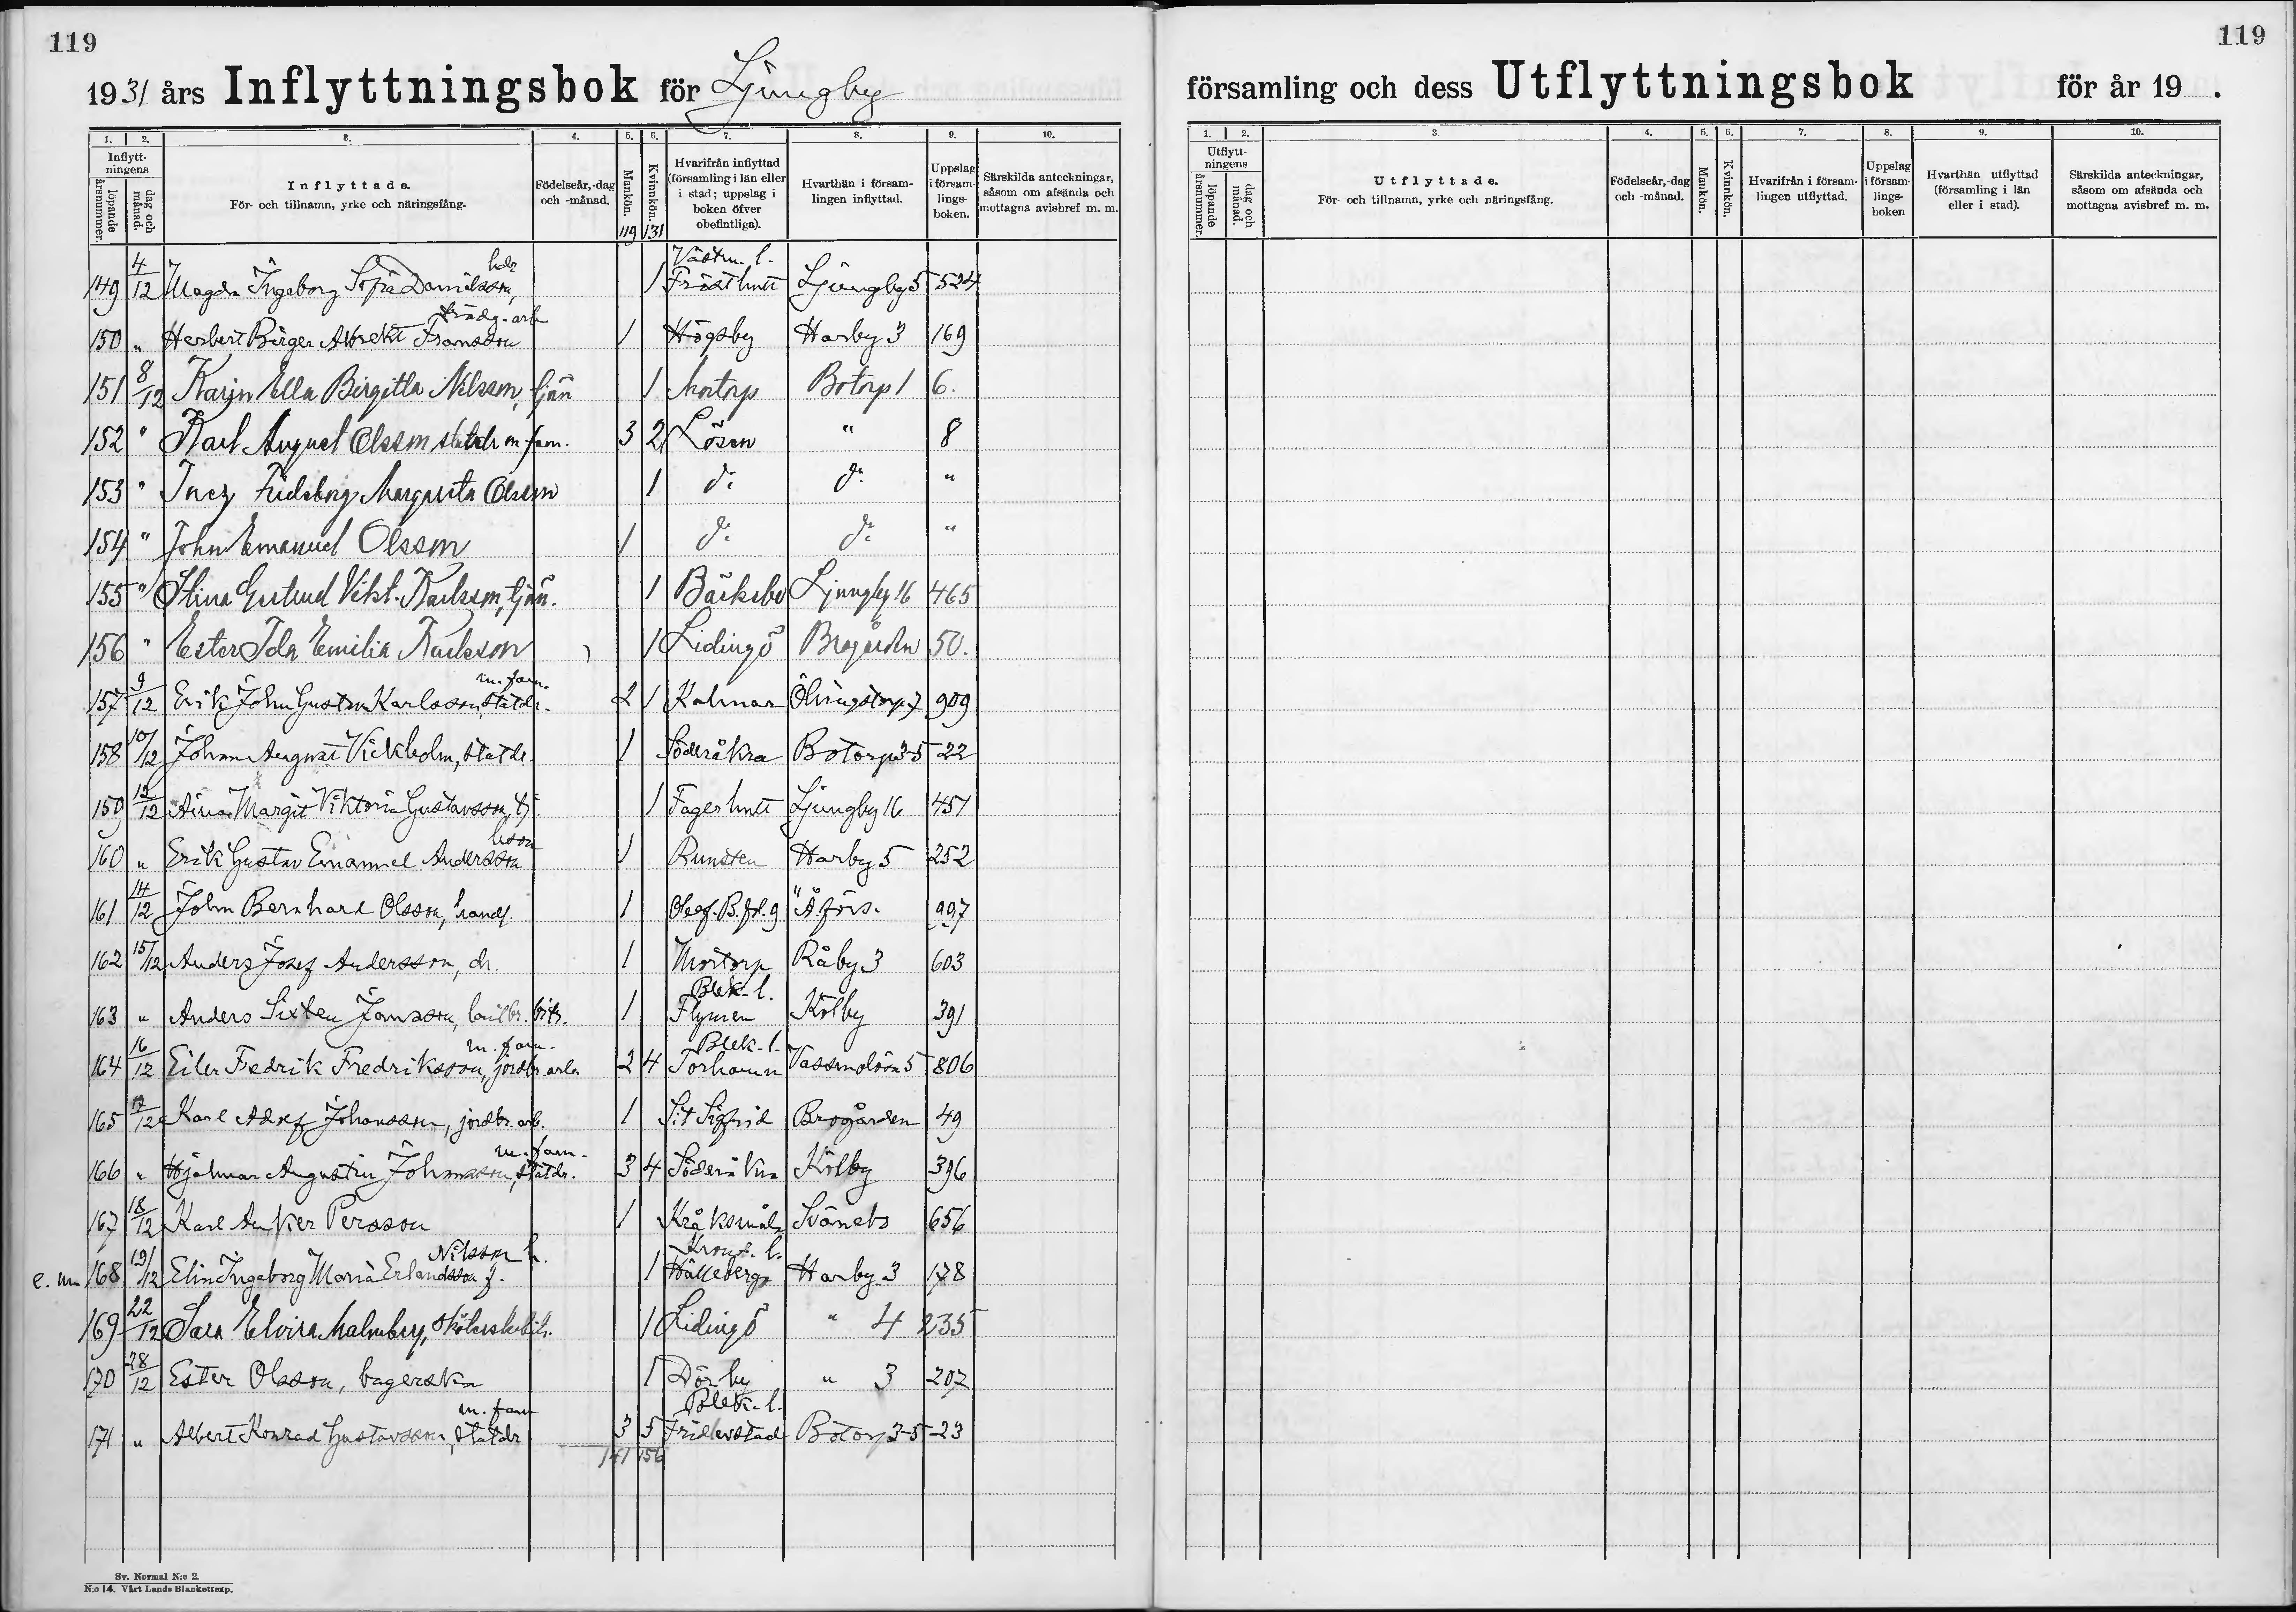 119
1931 års Inflyttningsbok för Ljungby
1. 2. 3. 4. 5. 6. 7. 8. 9. 10.
Inflytt-ningens
löpande årsnummer.
dag och månad.
Inflyttade.
För- och tillnamn, yrke och näringsfång.
Födelseår,-dag och -månad.
Mankön.
119
Kvinnkön.
131
Hvarifrån inflyttad (församling i län eller i stad; uppslag i boken öfver obefintliga).
Hvarthän i församlingen inflyttad.
Uppslag i församlings-boken.
Särskilda anteckningar, såsom om afsända och mottagna avisbref m. m.
149 4/12 Magda Ingeborg Sofia Danielsson, 1 Västm. l. Frösthult Ljungby 5 524
150 " Herbert Birger Albrekt Fransson trädg. arb 1 Högsby Harby 3 169
151 8/12 Karin Ella Birgitta Nilsson, tjän 1 Mortorp Botorp 1 6.
152 " Karl August Olsson statdr m fam. 3 2 Lösen " 8
153 " Inez Frideborg Margareta Olsson 1 d:o d:o "
154 " John Emanuel Olsson 1 d:o d:o "
155 " Stina Gertrud Vikt. Karlsson, tjän. 1 Bäckebo Ljungby 16 465
156 " Ester Ida Emilia Karlsson 1 Lidingö Brogården 50.
157 9/12 Erik John Gustav Karlsson, statdr. m. fam. 2 1 Kalmar Ölvingstorp 7 909
158 10/12 Johan August Vickholm, statdr. 1 Söderåkra Botorp 3-5 22
159 12/12 Aina Margit Viktoria Gustavsson, tj. 1 Fagerhult Ljungby 16 451
160 " Erik Gustav Emanuel Andersson 1 Runsten Harby 5 252
161 14/12 John Bernhard Olsson, handl. 1 Obef. B. fol. 9 "Å förs. 997
162 15/12 Anders Josef Andersson, dr. 1 Mortorp Råby 3 603
163 " Anders Sixten Jonasson, lantbr. bitr. 1 Blek. l. Flymen Kölby 391
164 16/12 Eiler Fredrik Fredriksson, jordbr. arb. m. fam. 2 4 Blek. l. Torhamn Vassmolösa 5 806
165 17/12 Karl Adolf Johansson, jordbr. arb. 1 S:t Sigfrid Brogården 49
166 " Hjalmar Augustin Johansson, statdr. m. fam. 3 4 Söderåkra Kölby 396
167 18/12 Karl Anker Persson 1 Kråksmåla Svänebo 656
e. m. 168 19/12 Elin Ingeborg Maria Erlandsson f. Nilsson h. 1 Kronob. l. Hälleberga Harby 3 178
169 22/12 Sara Elvira Malmberg, sköterskebitr. 1 Lidingö " 4 235
170 28/12 Ester Olsson, bagerska 1 Dörby " 3 207
171 " Albert Konrad Gustavsson, statdr m. fam 3 5 Blek. l. Fridlevstad Botorp 3-5 23
141 156
Sv. Normal N:o 2.
N:o 14. Vårt Lands Blankettexp.
119
församling och dess Utflyttningsbok för år 19 .
1. 2. 3. 4. 5. 6. 7. 8. 9. 10.
Utflytt-ningens
löpande årsnummer.
dag och månad.
Utflyttade.
För- och tillnamn, yrke och näringsfång.
Födelseår,-dag och -månad.
Mankön.
Kvinnkön.
Hvarifrån i församlingen utflyttad.
Uppslag i församlings-boken
Hvarthän utflyttad (församling i län eller i stad).
Särskilda anteckningar, såsom om afsända och mottagna avisbref m. m.